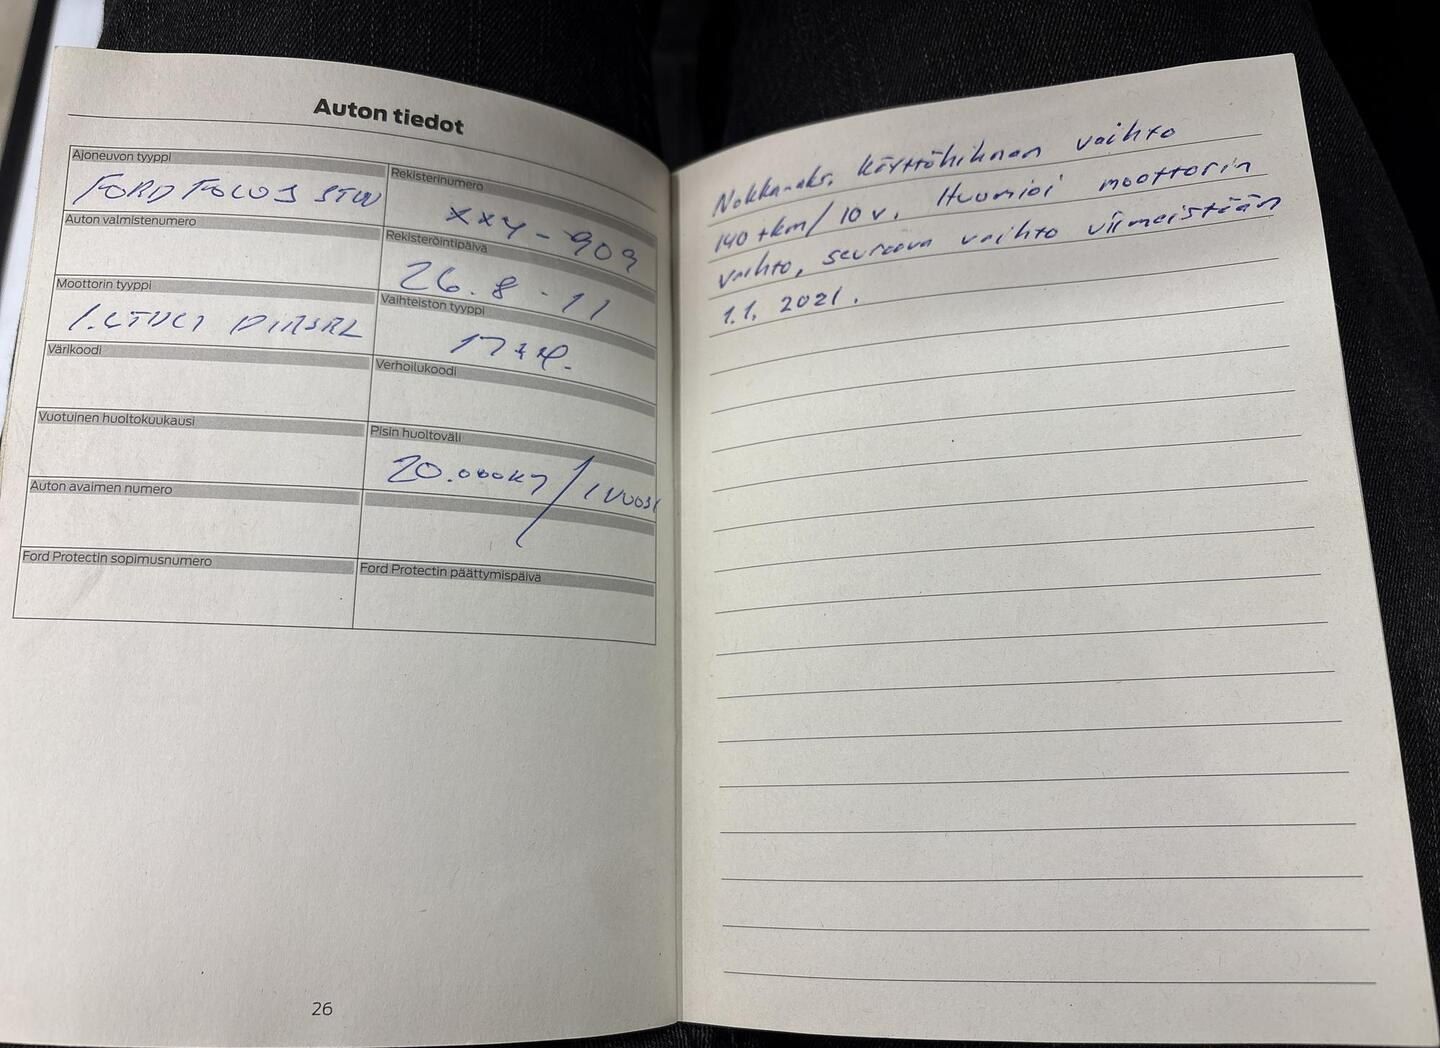 Auton tiedot
Ajoneuvon tyyppi
FORD FOCUS STW
Rekisterinumero
XXY-909
Auton valmistenumero
Rekisteröintipäivä
26.8-11
Moottorin tyyppi
DIESEL
Vaihteiston tyyppi
Värikoodi
Verhoilukoodi
Vuotuinen huoltokuukausi
Pisin huoltoväli
20.000KM / 1 VUOSI
Auton avaimen numero
Ford Protectin sopimusnumero
Ford Protectin päättymispäivä
26
Nokka-aks. käyttöhihnan vaihto
140 tkm/10 v. Huomioi moottorin
vaihto, seuraava vaihto viimeistään
1.1. 2021.